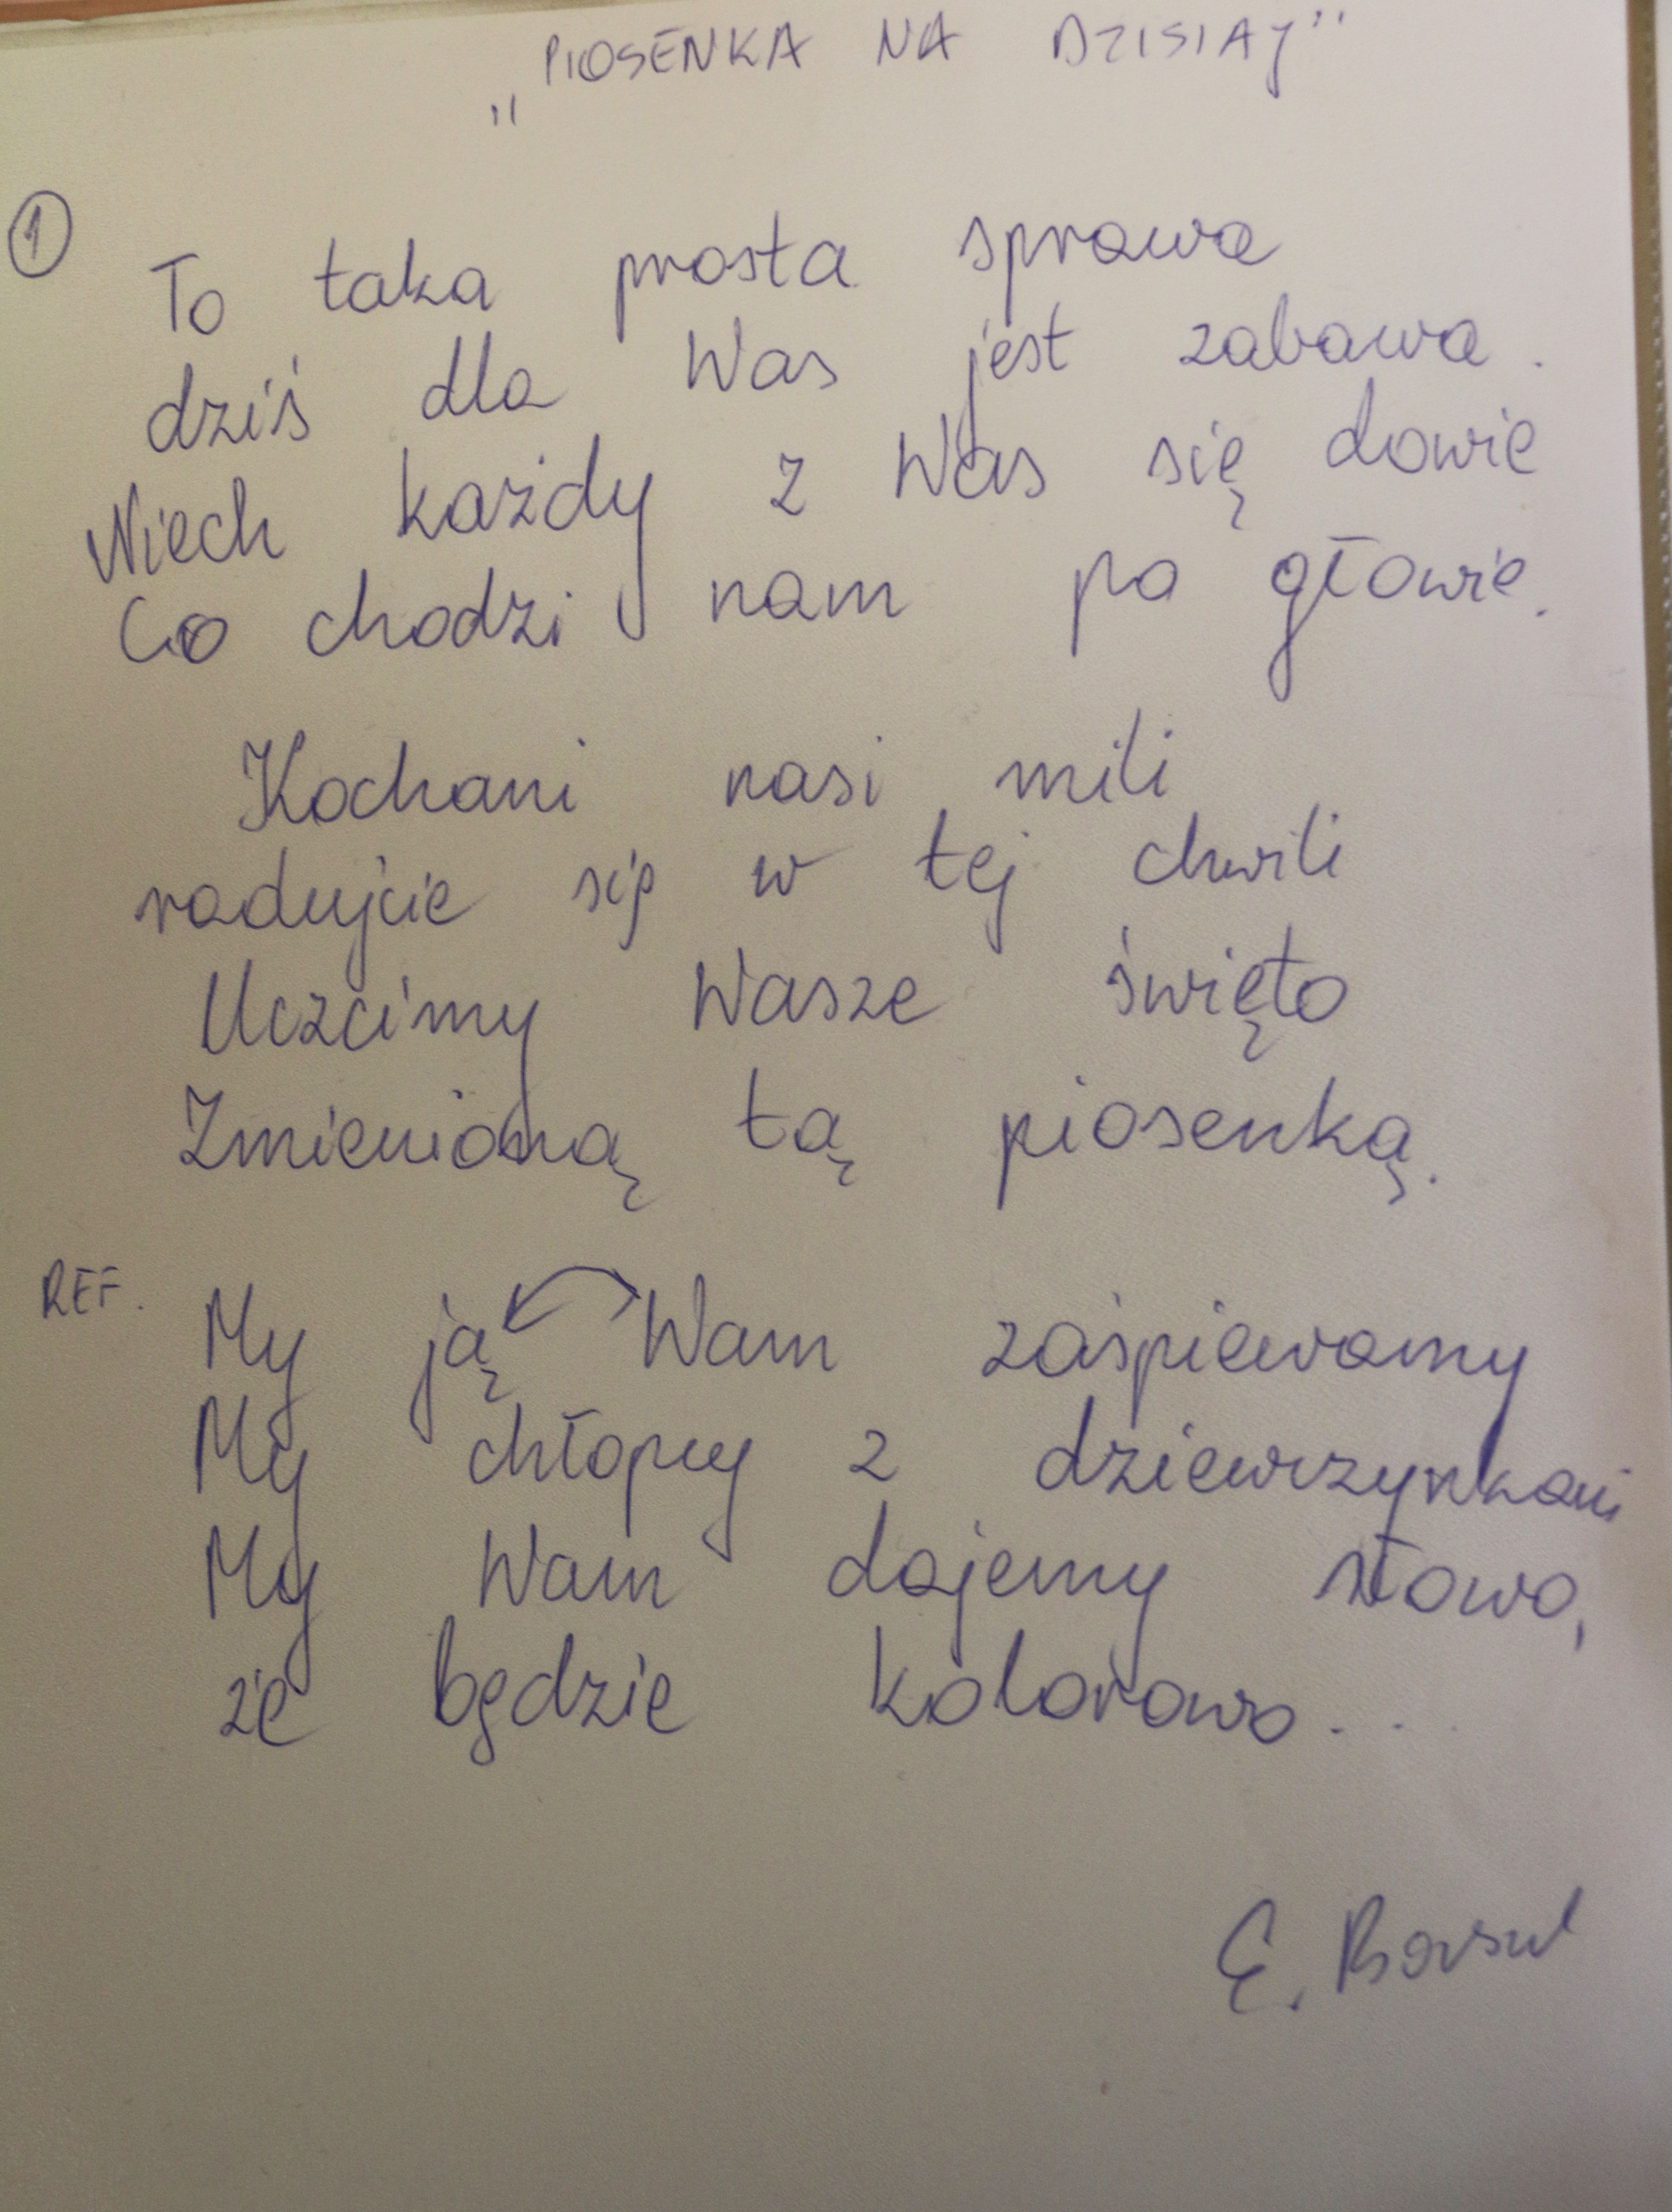 „PIOSENKA NA DZISIAJ"
1
To taka prosta sprawa
dziś dla Was jest zabawa.
Niech każdy z Was się dowie
Co chodzi nam po głowie.
Kochani nasi mili
radujcie się w tej chwili
Uczcimy Wasze święto
Zmienioną tą piosenką.
REF. My ją Wam zaśpiewamy
My chłopcy z dziewczynkami
My Wam dajemy słowo,
że będzie kolorowo...
E.